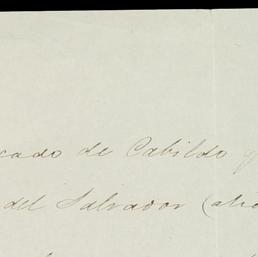 cado de Cabildo q
del Salvador (alia